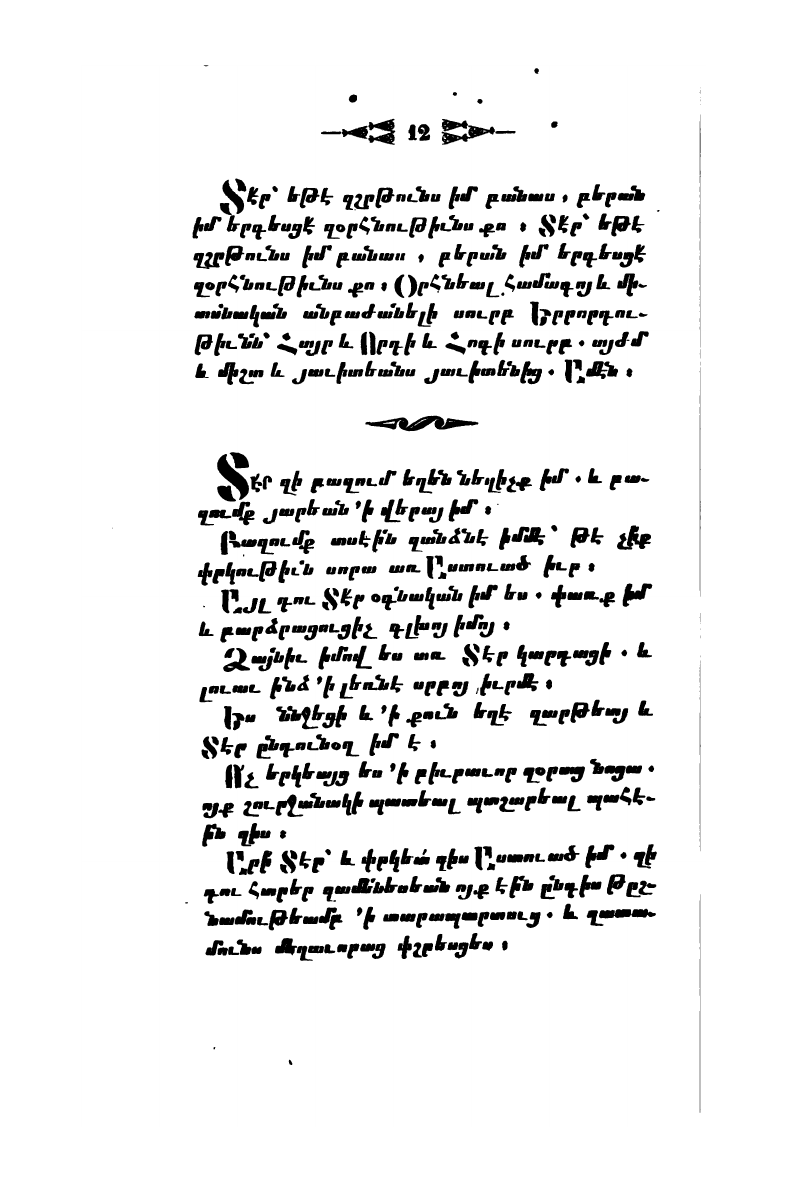 12
Տէր՝ եթէ զշրթունս իմ բանաս, բերան
իմ երգեսցէ զօրհնութիւնս քո ։ Տէր՝ եթէ
զշրթունս իմ բանաս, բերան իմ երգեսցէ
զօրհնութիւնս քո ։ Օրհնեալ համագոյ և մի-
ասնական անբաժանելի սուրբ Երրորդու-
թիւնն՝ Հայր և Որդի և Հոգի սուրբ. այժմ
և միշտ և յաւիտեանս յաւիտենից. Ամէն ։
Տէր զի բազում եղեն նեղիչք իմ. և բա-
զումք յարեան ՚ի վերայ իմ ։
Բազումք ասէին զանձնէ իմմէ՝ թէ չիք
փրկութիւն սորա առ Աստուած իւր ։
Այլ դու Տէր օգնական իմ ես. փառք իմ
և բարձրացուցիչ գլխոյ իմոյ ։
Ձայնիւ իմով ես առ Տէր կարդացի. և
լուաւ ինձ ՚ի լեռնէ սրբոյ իւրմէ ։
Ես ննջեցի և ՚ի քուն եղէ զարթեայ և
Տէր ընդունօղ իմ է ։
Ոչ երկեայց ես ՚ի բիւրաւոր զօրաց նոցա.
ոյք շուրջանակի պատեալ պաշարեալ պահէ-
ին զիս ։
Արի Տէր՝ և փրկեա զիս Աստուած իմ. զի
դու հարեր զամենեսեան ոյք էին ընդիս թըշ-
նամութեամբ ՚ի տարապարտուց. և զատա-
մունս մեղաւորաց փշրեսցես ։